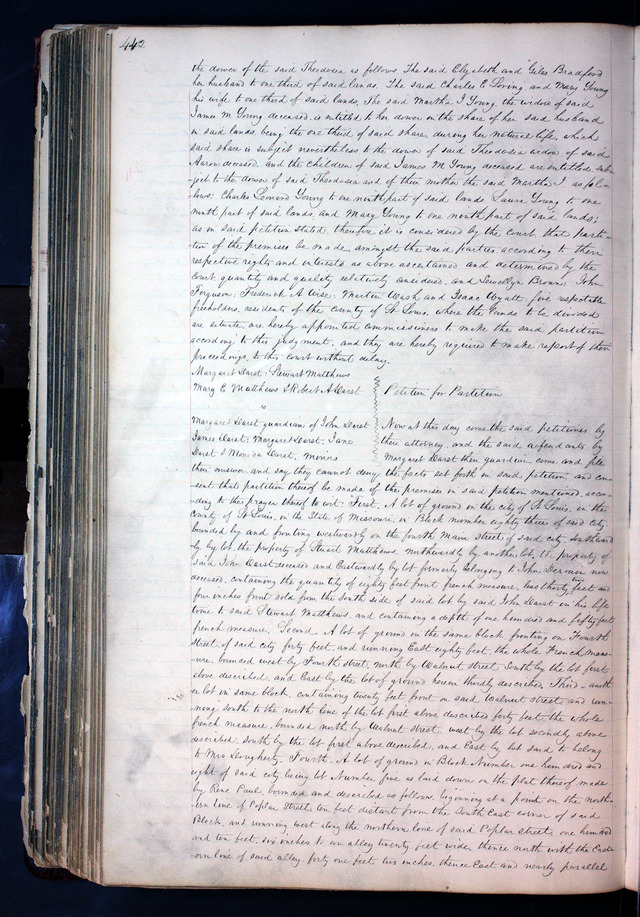 442
the dower of the said Theodosia as follows. The said Elizabeth and Giles Bradford
her husband to one third of said lands. The said Charles E Loring and Mary Young
his wife to one third of said lands, The said Martha I Young, the widow of said
James M Young deceased, is entitled to her dower in the share of her said husband
in said lands being the one third of said share, during her natural life, which
said share is subject nevertheless to the dower of said Theodosia widow of said
Aaron deceased, and the children of said James M Young deceased are entitled sub-
ject to the dower of said Theodosia and of their mother the said Martha I as fol-
lows: Charles Young to one ninth part of said lands Laura Young to one
ninth part of said lands and Mary Young to one ninth part of said lands;
as in said petition stated, therefore it is considered by the court that parti-
tion of the premises be made amongst the said parties according to their
respective rights and interests as above ascertained and determined by the
court quantity and quality relatively considered, and Lewellyn Brown; John
Ferguson; Frederick A Wise; Martin Wash and Isaac Wyatt five respectable
freeholders, residents of the county of St Louis, where the lands to be divided
are situate, are hereby appointed commissioners to make the said partition
according to this judgment, and they are hereby required to make report of their
proceedings, to this court without delay.
Margaret Darst; Stewart Matthews
Mary E Matthews & Robert A Darst
Petition for Partition
Margaret Darst guardian of John Darst
James Darst; Margaret Darst; Jane
Darst & Monica Darst, minors
Now at this day come the said petitioners by
their attorney, and the said defendants by
Margaret Darst their guardian come and file
their answer and say they cannot deny the facts set forth in said petition and con-
sent that partition thereof be made of the premises in said petition mentioned, accor-
ding to the prayer thereof to wit: First, A lot of ground in the city of St Louis, in the
county of St Louis, in the State of Missouri, in Block number eighty three of said city
bounded by and fronting westwardly on the fourth Main Street of said city Southward-
ly by lot, the property of Stuart Matthews, northwardly by another lot, the property of
said John Darst deceased and Eastwardly by lot formerly belonging to John now
deceased, containing the quantity of eighty feet front french measure, less thirty feet and
four inches front sold from the South side of said lot by said John Darst in his life
time to said Stewart Matthews, and containing a depth of one hundred and fifty feet
french measure, Second. A lot of ground in the same block fronting on Fourth
street, of said city forty feet, and running East eighty feet, the whole French meas-
ure, bounded west by Fourth street, north by Walnut street, South by the lot first
above described, and East by the lot of ground herein thirdly described, Third - anoth-
er lot in same block, containing twenty feet front on said Walnut street, and run-
ning south to the north line of the lot first above described forty feet, the whole
french measure, bounded north by Walnut street, west by the lot secondly above
described, south by the lot first above described, and East by lot said to belong
to Mrs Dougherty. Fourth, A lot of ground in Block Number one hundred and
eight of said city being lot Number five as laid down on the plat thereof made
by Rene Paul, bounded and described as follows, beginning at a point on the north-
ern line of Poplar Street, ten feet distant from the South East corner of said
Block, and running west along the northern line of said Poplar street, one hundred
and ten feet, six inches to an alley twenty feet wide, thence north with the East-
ern line of said alley, forty one feet two inches, thence East and nearly parallel